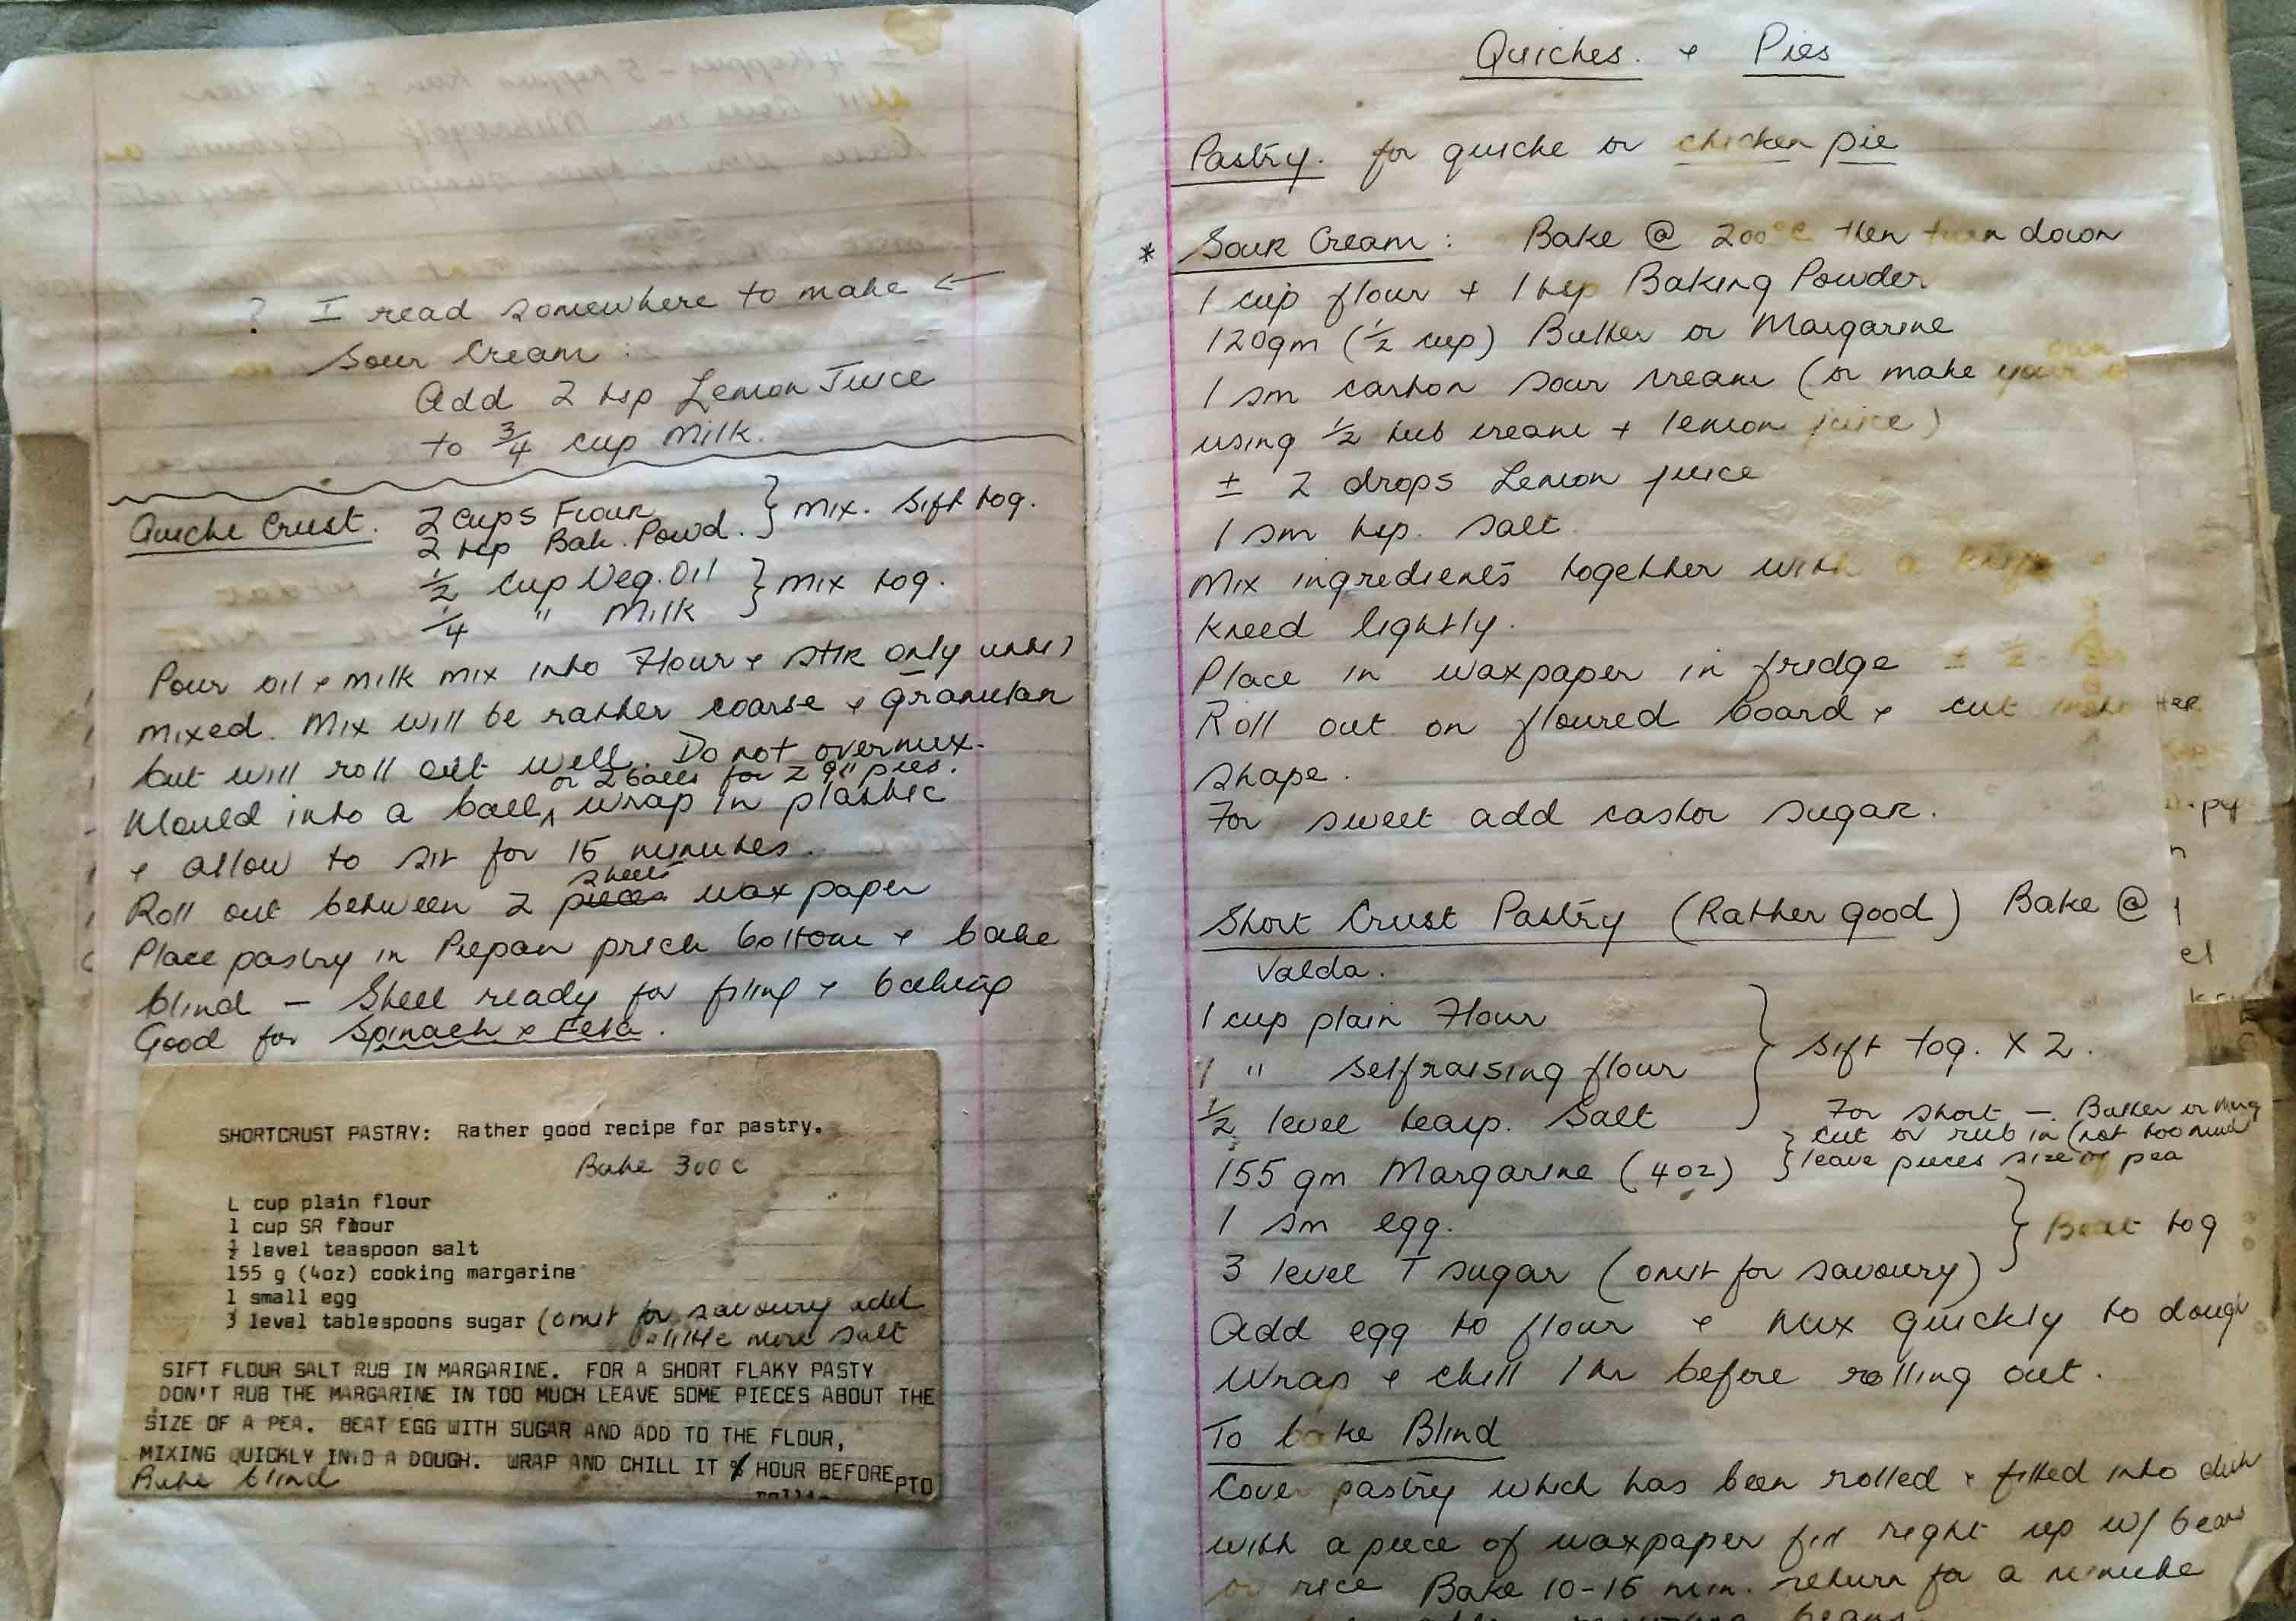 ? I read somewhere to make ←
Sour Cream :
Add 2 tsp Lemon Juice
to 3/4 cup Milk.
Quiche Crust. 2 Cups Flour } mix. Sift tog.
2 tsp Bak. Powd.
1/2 Cup Veg. Oil } mix tog.
1/4 " Milk
Pour oil + milk mix into Flour + stir only until
mixed. Mix will be rather coarse + granular
but will roll out well. Do not overmix.
or 2 balls for 2 9" pies.
Mould into a ball, ∧ wrap in plastic
+ allow to sit for 15 minutes.
sheets
Roll out between 2 pieces wax paper
Place pastry in Piepan prick bottom + bake
blind – Shell ready for filing + baking
Good for Spinach + Feta.
SHORTCRUST PASTRY: Rather good recipe for pastry.
Bake 300 c
L cup plain flour
1 cup SR flour
½ level teaspoon salt
155 g (4oz) cooking margarine
1 small egg
3 level tablespoons sugar (omit for savoury add
little more salt
SIFT FLOUR SALT RUB IN MARGARINE. FOR A SHORT FLAKY PASTY
DON'T RUB THE MARGARINE IN TOO MUCH LEAVE SOME PIECES ABOUT THE
SIZE OF A PEA. BEAT EGG WITH SUGAR AND ADD TO THE FLOUR,
MIXING QUICKLY INTO A DOUGH. WRAP AND CHILL IT HOUR BEFORE PTO
Bake blind
Quiches. + Pies
Pastry. for quiche or chicken pie
* Sour Cream : Bake @ 200°c then turn down
1 cup flour + 1 tsp Baking Powder
120gm (1/2 cup) Butter or Margarine
1 sm carton sour cream (or make your own
using 1/2 tub cream + lemon juice)
± 2 drops Lemon juice
1 sm tsp. salt
Mix ingredients together with a knife
Kneed lightly.
Place in waxpaper in fridge ± 1/2
Roll out on floured board + cut into
shape.
For sweet add castor sugar.
Short Crust Pastry (Rather good) Bake @
Valda.
1 cup plain Flour
1 " selfraising flour } Sift tog. X 2.
1/2 level teasp. Salt
For short – Butter or Marg
cut or rub in (not too much
155 gm Margarine (4oz) } leave pieces size of pea
1 sm egg. } Beat tog
3 level T sugar (omit for savoury)
Add egg to flour + Mix quickly to dough
Wrap + chill 1 hr before rolling out.
To bake Blind
Cover pastry which has been rolled + fitted into dish
with a piece of waxpaper fill right up w/ beans
or rice Bake 10-15 min. return for a minute
beans.